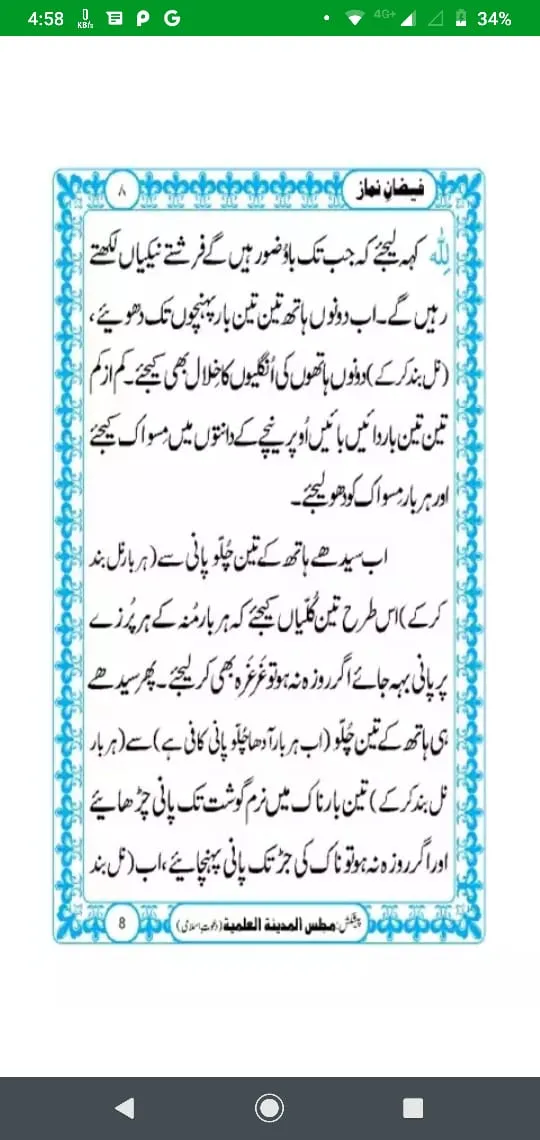 4:58 0 KB/s P G 4G+ 34%
فیضانِ نماز ۸
لِلّٰہ کہہ لیجئے کہ جب تک باوُضو رہیں گے فرشتے نیکیاں لکھتے
رہیں گے۔ اب دونوں ہاتھ تین تین بار پہنچوں تک دھوئیے،
(نل بند کر کے) دونوں ہاتھوں کی اُنگلیوں کا خِلال بھی کیجئے۔ کم از کم
تین تین بار دائیں بائیں اُوپر نیچے کے دانتوں میں مِسواک کیجئے
اور ہر بار مِسواک کو دھو لیجئے۔
اب سیدھے ہاتھ کے تین چُلّو پانی سے (ہر بار نل بند
کر کے) اس طرح تین کُلّیاں کیجئے کہ ہر بار مُنہ کے ہر پُرزے
پر پانی بہہ جائے اگر روزہ نہ ہو تو غَرغَرہ بھی کر لیجئے۔ پھر سیدھے
ہی ہاتھ کے تین چُلّو (اب ہر بار آدھا چُلّو پانی کافی ہے) سے (ہر بار
نل بند کر کے) تین بار ناک میں نرم گوشت تک پانی چڑھائیے
اور اگر روزہ نہ ہو تو ناک کی جڑ تک پانی پہنچائیے، اب (نل بند
پیشکش: مطس المدينة العلمية (دعوتِ اسلامی) 8